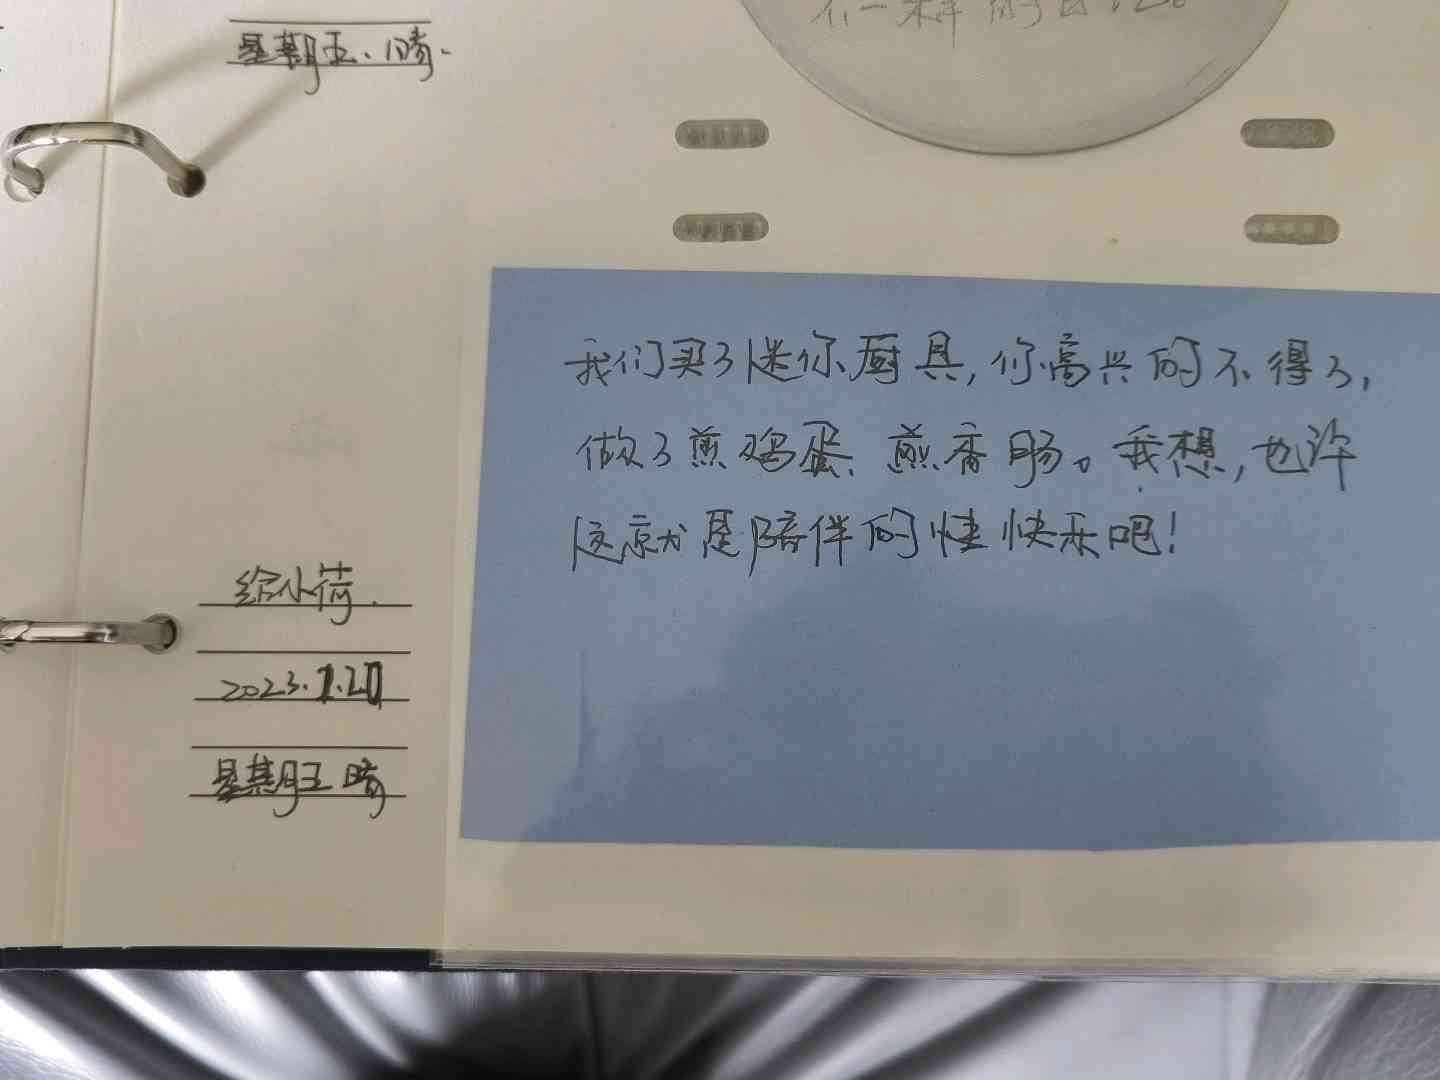 不一样的
星期五、晴.
我们买了迷你厨具,你高兴的不得了,
做了煎鸡蛋、煎香肠。我想,也许
这就是陪伴的快快乐吧!
给小荷.
2023.1.20
星期五 晴